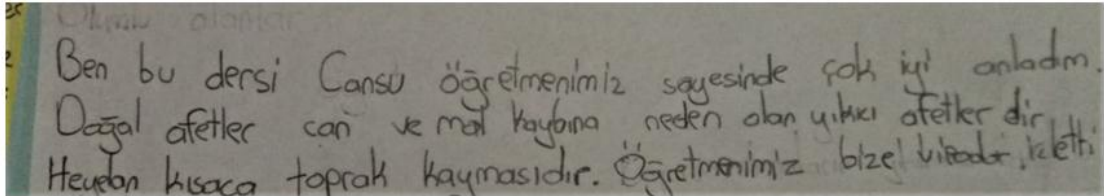 Olumlu olanlar
Ben bu dersi Cansu öğretmenimiz sayesinde çok iyi anladım.
Doğal afetler can ve mal kaybına neden olan yıkıcı afetler dir
Heyelan kısaca toprak kaymasıdır. Öğretmenimiz bize izletti